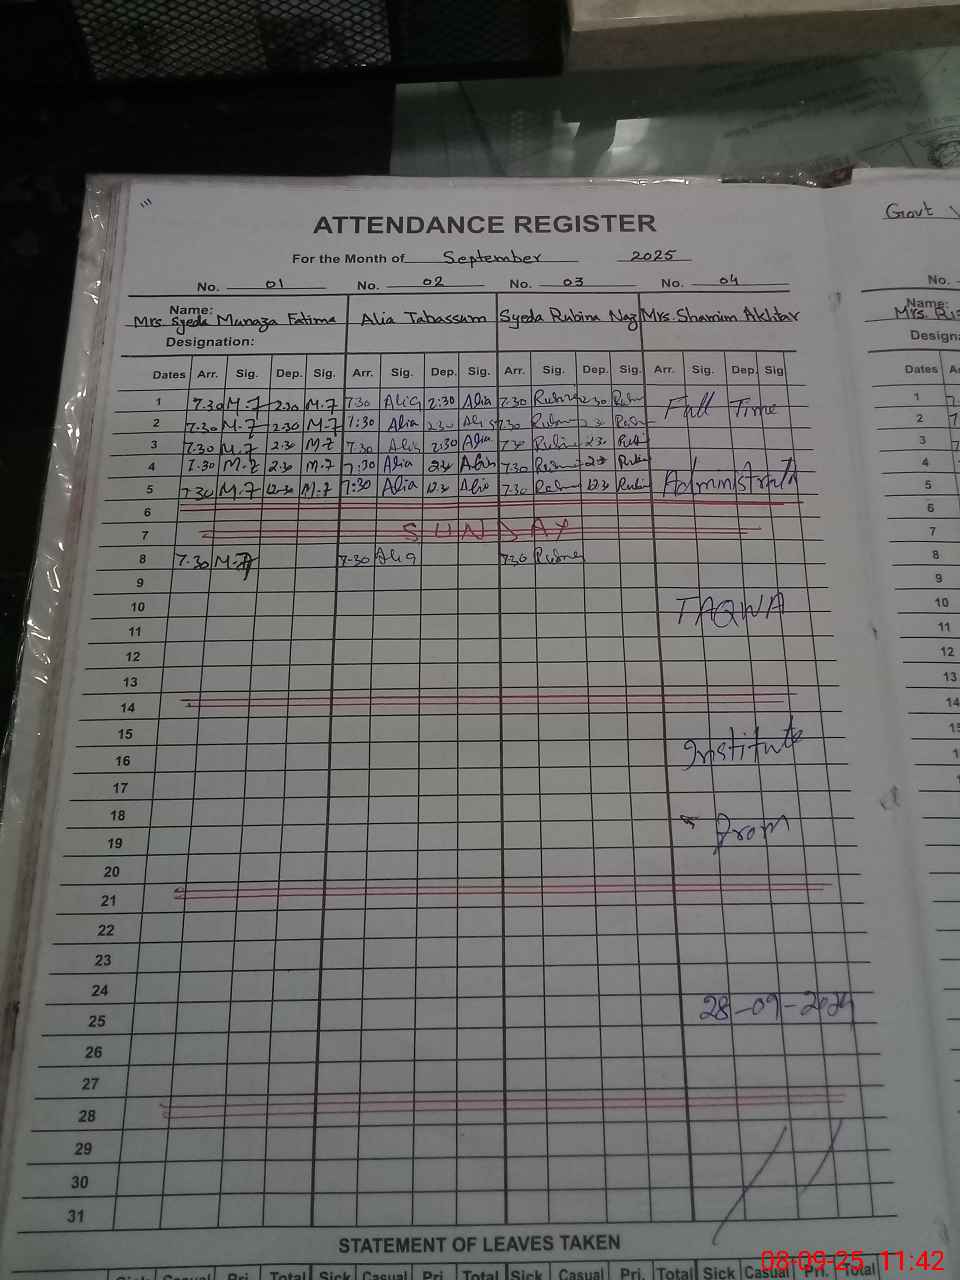 ATTENDANCE REGISTER
For the Month of September 2025
No. 01 No. 02 No. 03 No. 04
Name: Mrs. Syeda Munaza Fatima Alia Tabassum Syeda Rubina Naz Mrs. Shamim Akhtar
Designation:
Dates Arr. Sig. Dep. Sig. Arr. Sig. Dep. Sig. Arr. Sig. Dep. Sig. Arr. Sig. Dep. Sig
1 7.30 M.7 2.30 M.7 7.30 Alia 2:30 Alia 7.30 2.30 Full Time
2 7.30 M.7 2.30 M.7 7:30 Alia 2.30 Alia 7.30 2.30
3 7.30 M.7 2.30 M.7 7.30 Alia 2:30 Alia 7.30 2.30
4 7.30 M.7 2.30 M.7 7:30 Alia 2.30 Alia 7.30 2.30
5 7.30 M.7 12.30 M.7 7:30 Alia 12.30 Alia 7.30 12.30
6
7 SUNDAY
8 7.30 M.7 7.30 Alia 7.30
9
10 TAQWA
11
12
13
14
15
16 Institute
17
18
19 From
20
21
22
23
24
25 28-09-2024
26
27
28
29
30
31
STATEMENT OF LEAVES TAKEN
Sick Casual Pri. Total Sick Casual Pri. Total Sick Casual Pri. Total Sick Casual Pri. Total
Govt
No.
Name:
Mrs.
Dates
1
2
3
4
5
6
7
8
9
10
11
12
13
14
08-09-25 11:42